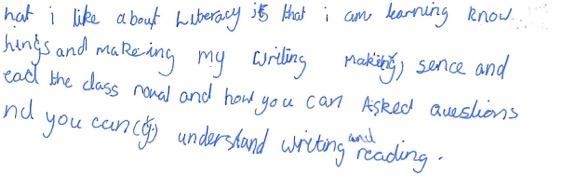 hat i like about Literacy is that i am learning know
hings and makeing my writing making, sence and
ead the class noval and how you can Asked questions
nd you can understand writing and reading.